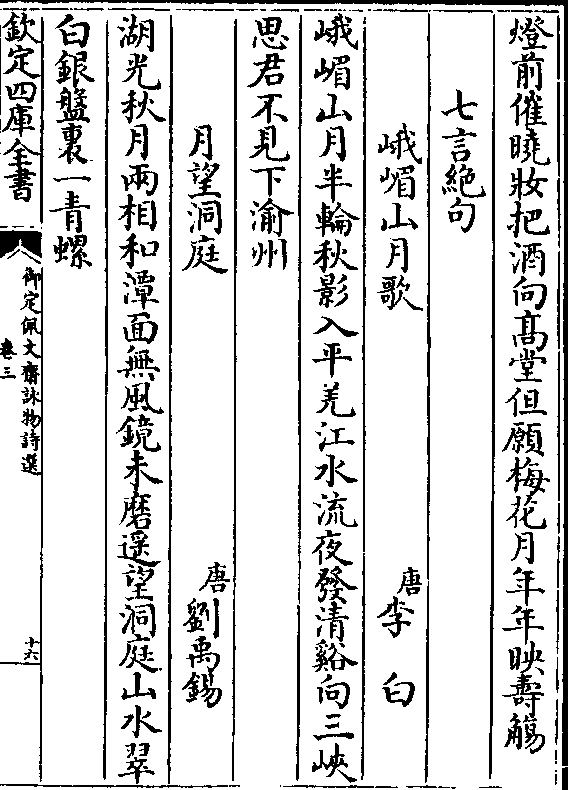 燈前催曉妝把酒向髙堂但願梅花月年年映壽觴
七言絶句
峨嵋山月歌　唐李白
峨嵋山月半輪秋影入平羌江水流夜發清谿向三峽
思君不見下渝州
月望洞庭　唐劉禹錫
湖光秋月兩相和潭面無風鏡未磨遥望洞庭山水翠
白銀盤裏一青螺
欽定四庫全書
御定佩文齋詠物詩選
卷三
十六